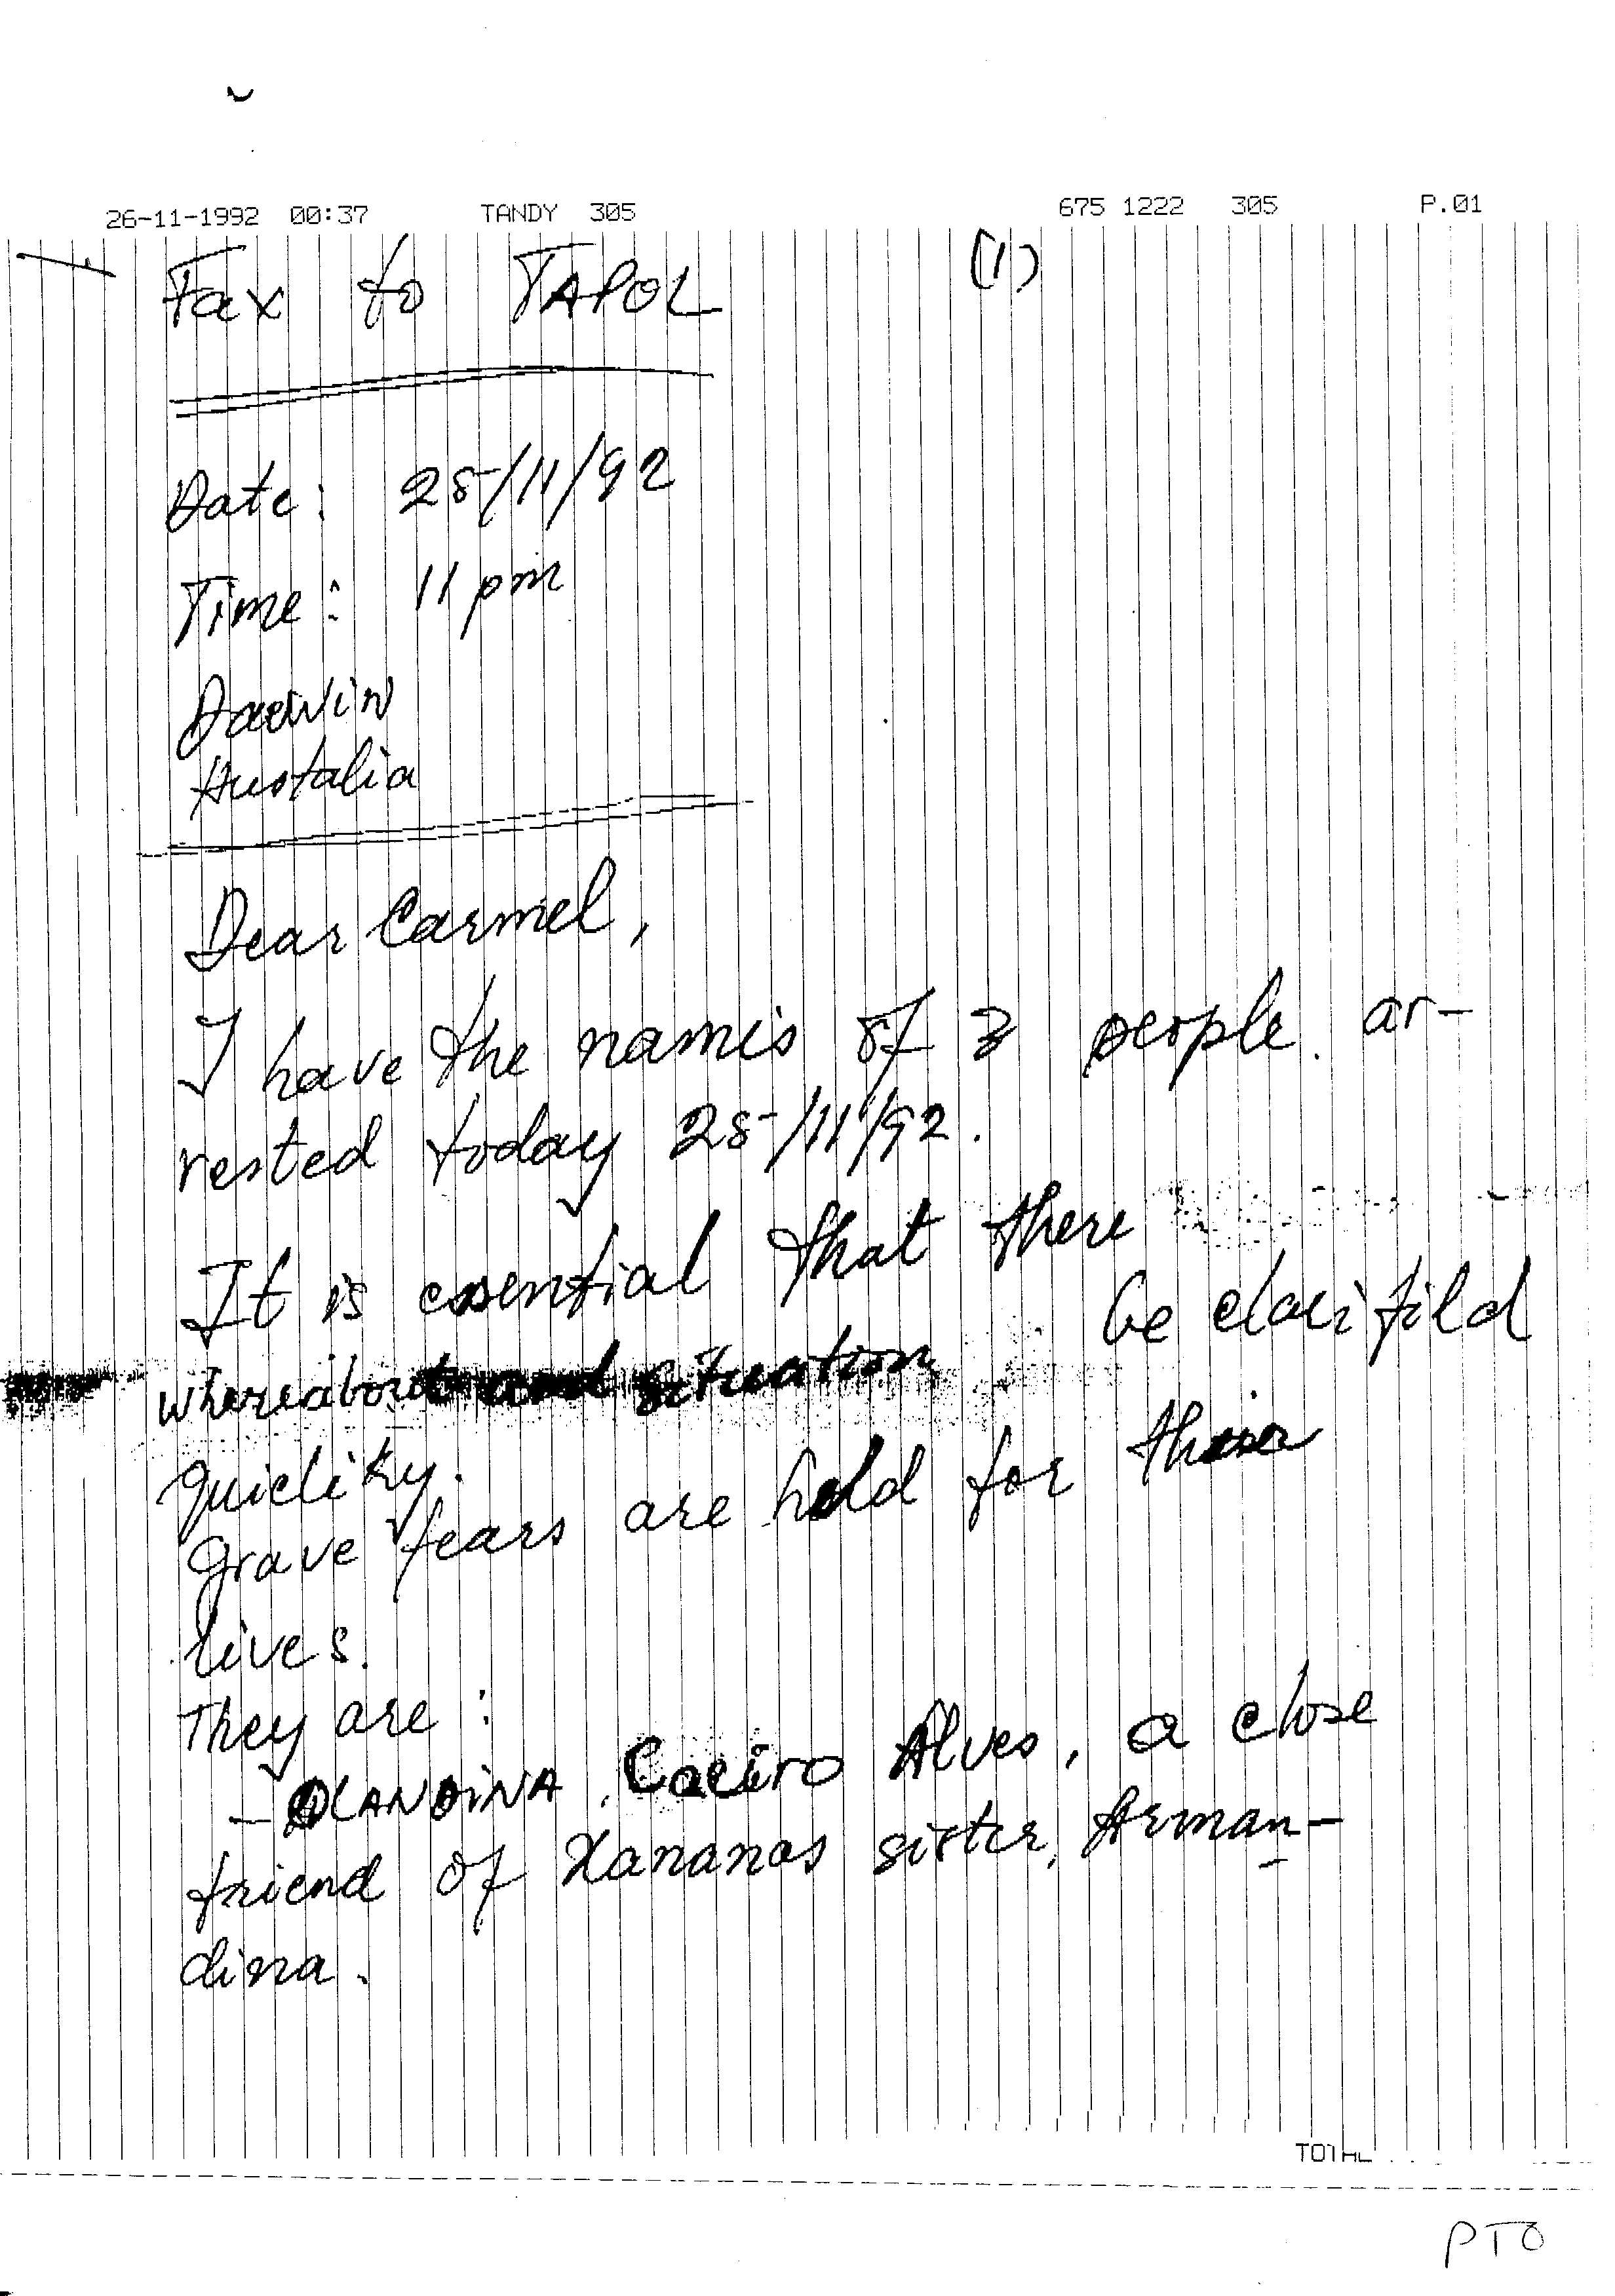 26-11-1992 00:37 TANDY 305 675 1222 305 P.01
Fax to TAPOL (1)
Date: 25/11/92
Time: 11 pm
Darwin
Austalia
Dear Carmel,
I have the names of 3 people ar-
rested today 25/11/92.
It is essential that there
whereabout and situation be clarifild
quicliky.
Grave fears are held for their
lives.
They are:
- OLANDINA Caeiro Alves, a close
friend of Xananas sister, Arman-
dina.
TOTAL
PTO